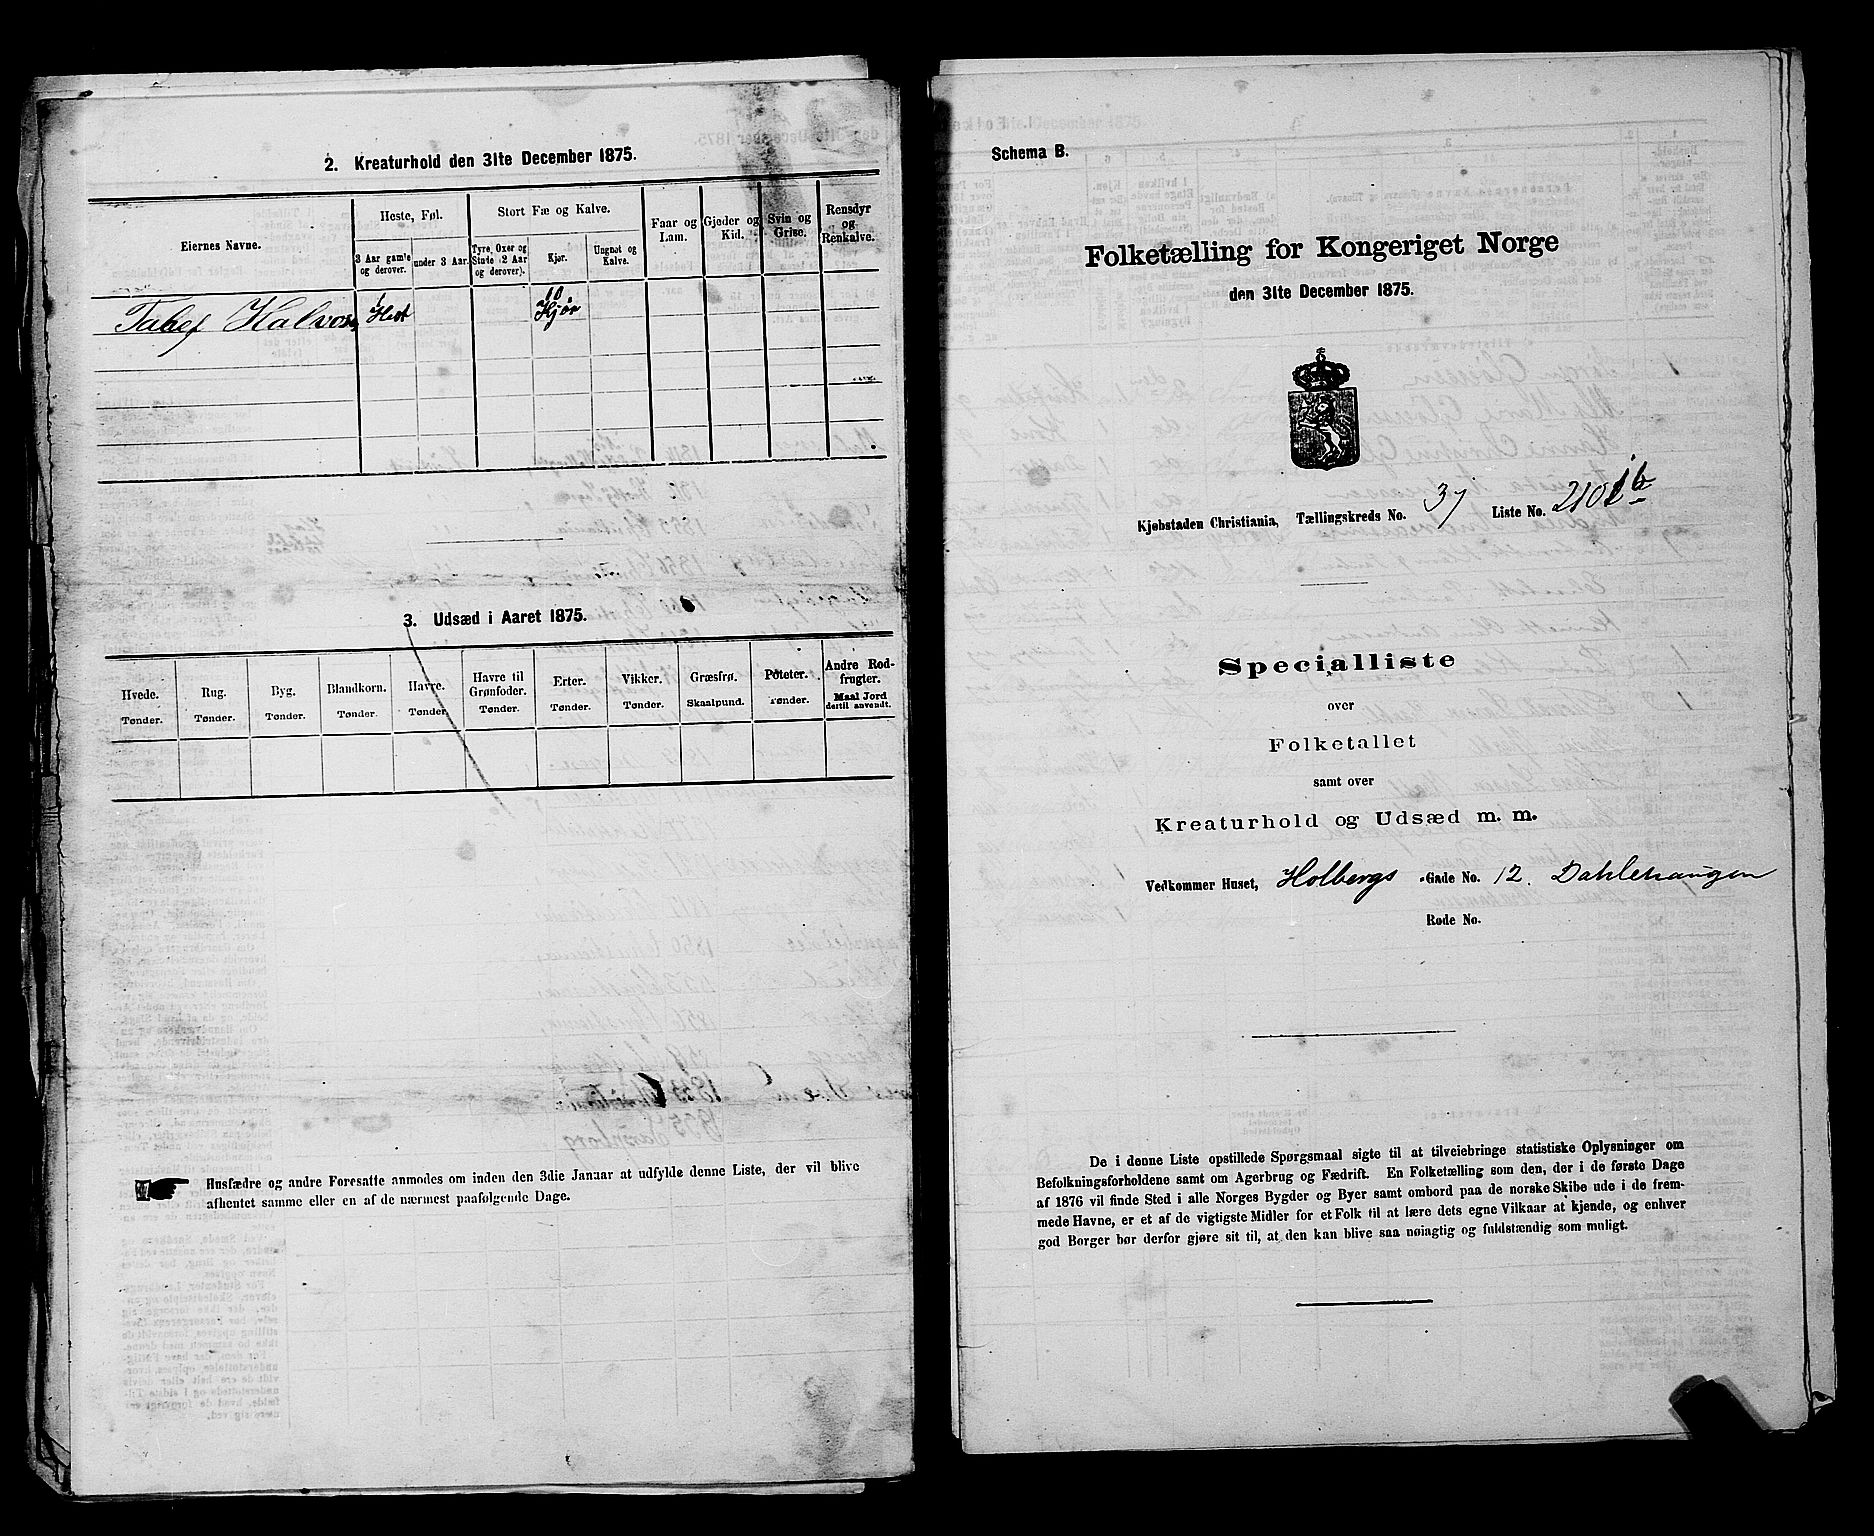 2. Kreaturhold den 31te December 1875.
Eiernes Navne.
Heste, Føl.
3 Aar gamle og derover.
under 3 Aar.
Stort Fæ og Kalve.
Tyre, Oxer og Stude (2 Aar og derover).
Kjør.
Ungnøt og Kalve.
Faar og Lam.
Gjeder og Kid.
Svin og Grise.
Rensdyr og Renkalve.
Halvors
1 Hest
10 Kjør
3. Udsæd i Aaret 1875.
Hvede. Tønder.
Rug. Tønder.
Byg. Tønder.
Blandkorn. Tønder.
Havre. Tønder.
Havre til Grønfoder. Tønder.
Erter. Tønder.
Vikker. Tønder.
Græsfrø. Skaalpund.
Poteter. Tønder.
Andre Rodfrugter. Maal Jord dertil anvendt.
Husfædre og andre Foresatte anmodes om inden den 3die Januar at udfylde denne Liste, der vil blive
afhentet samme eller en af de nærmest paafølgende Dage.
Schema B.
Folketælling for Kongeriget Norge
den 31te December 1875.
Kjøbstaden Christiania, Tællingskreds No. 37 Liste No.
Specialliste
over
Folketallet
samt over
Kreaturhold og Udsæd m. m.
Vedkommer Huset, Holbergs -Gade No. 12. Dahlehaugen
Rode No.
De i denne Liste opstillede Spørgsmaal sigte til at tilveiebringe statistiske Oplysninger om
Befolkningsforholdene samt om Agerbrug og Fædrift. En Folketælling som den, der i de første Dage
af 1876 vil finde Sted i alle Norges Bygder og Byer samt ombord paa de norske Skibe ude i de frem-
mede Havne, er et af de vigtigste Midler for et Folk til at lære dets egne Vilkaar at kjende, og enhver
god Borger bør derfor gjøre sit til, at den kan blive saa nøiagtig og fuldstændig som muligt.